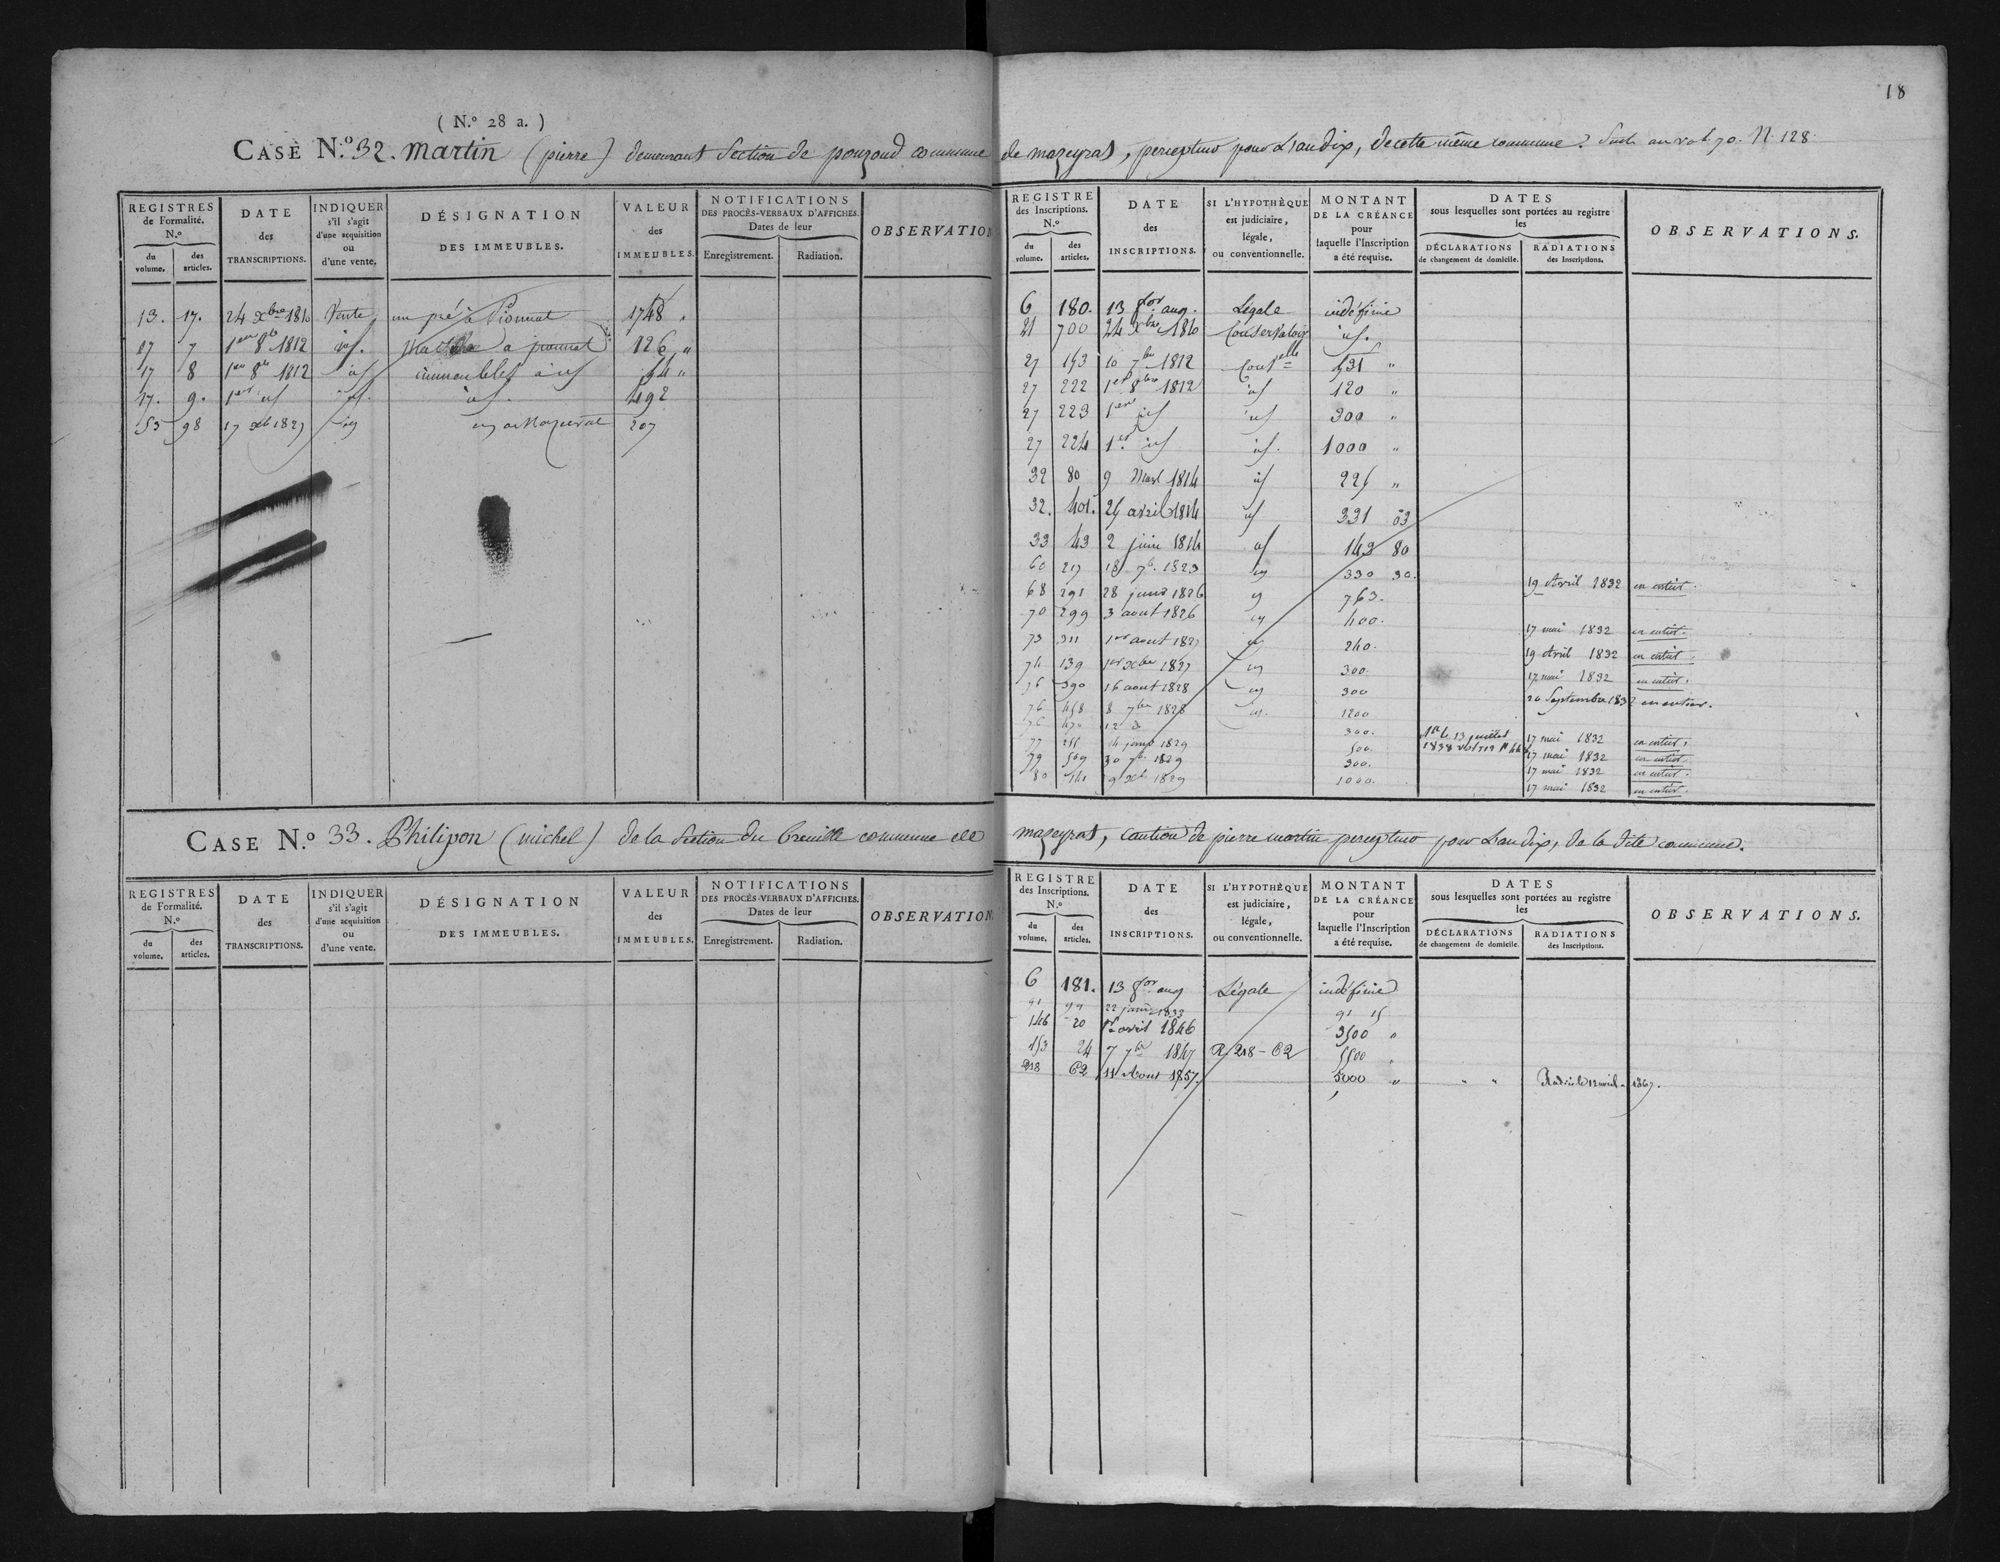 18
( N.º 28 a. )
CASE N.º 32. Martin (pierre) demeurant Section de pouzoud commune de mazeyrat, percepteur pour L'an dix, de cette même commune. Suite au vol. 70. N. 128
REGISTRES de Formalité. N.º
du volume.
des articles.
DATE des TRANSCRIPTIONS.
INDIQUER s'il s'agit d'une acquisition ou d'une vente.
DÉSIGNATION DES IMMEUBLES.
VALEUR des IMMEUBLES.
NOTIFICATIONS DES PROCÈS-VERBAUX D'AFFICHES. Dates de leur
Enregistrement.
Radiation.
OBSERVATION
13. 17. 24 Xbre 1810 Vente un pré à Pionnat 1748 "
17 7 1er 8bre 1812 id. a pionnat 126 "
17 8 1er 8bre 1812 id immeubles à id 54 "
17. 9. 1er id id. id. 492
53 98 17 Xb 1827 id 207
REGISTRE des Inscriptions. N.º
du volume.
des articles.
DATE des INSCRIPTIONS.
SI L'HYPOTHÈQUE est judiciaire, légale, ou conventionnelle.
MONTANT DE LA CRÉANCE pour laquelle l'Inscription a été requise.
DATES sous lesquelles sont portées au registre les
DÉCLARATIONS de changement de domicile.
RADIATIONS des Inscriptions.
OBSERVATIONS.
6 180. 13 Légale indéfinie
21 700 24 Xbre 1810 Conservatoire id.
27 153 10 7bre 1812 Contelle 531 "
27 222 1er 8bre 1812 id 120 "
27 223 1er id id 300 "
27 224 1er id id. 1000 "
32 80 9 Mars 1814 id 225 "
32. 401. 25 avril 1814 id 331 03
33 43 2 juin 1814 id 143 80
60 217 18 7b. 1823 id 330 30. 19 Avril 1832 en entier.
68 291 28 1826 id 763.
70 299 3 aout 1826 id 400. 17 mai 1832 en entier.
73 311 1er aout 1827 id 240. 19 Avril 1832 en entier.
74 139 1er Xbre 1827 id 300. 17 mai 1832 en entier.
76 390 16 aout 1828 id 300 20 Septembre 1832 en entier.
76 458 8 7bre 1828 id. 1200
76 470 12 d 300. 17 mai 1832 en entier.
77 255 1829 500. 13 juillet 1838 17 mai 1832 en entier.
79 509 30 7b. 1829 300. 17 mai 1832 en entier.
80 441 9 Xb 1829 1000. 17 mai 1832 en entier.
CASE N.º 33. Philipon (michel) de la Section du Breuille commune de mazeyrat, caution de pierre martin percepteur pour L'an dix, de la dite commune.
REGISTRES de Formalité. N.º
du volume.
des articles.
DATE des TRANSCRIPTIONS.
INDIQUER s'il s'agit d'une acquisition ou d'une vente.
DÉSIGNATION DES IMMEUBLES.
VALEUR des IMMEUBLES.
NOTIFICATIONS DES PROCÈS-VERBAUX D'AFFICHES. Dates de leur
Enregistrement.
Radiation.
OBSERVATION
REGISTRE des Inscriptions. N.º
du volume.
des articles.
DATE des INSCRIPTIONS.
SI L'HYPOTHÈQUE est judiciaire, légale, ou conventionnelle.
MONTANT DE LA CRÉANCE pour laquelle l'Inscription a été requise.
DATES sous lesquelles sont portées au registre les
DÉCLARATIONS de changement de domicile.
RADIATIONS des Inscriptions.
OBSERVATIONS.
6 181. 13 Légale indéfinie
91 99 22 janv 1833 91 15
146 20 1er avril 1846 3500 "
153 24 7 7bre 1847 R. 218 - 62 5500 "
218 62 11 Aout 1857. 5000 " " " Radié le 12 avril 1867.